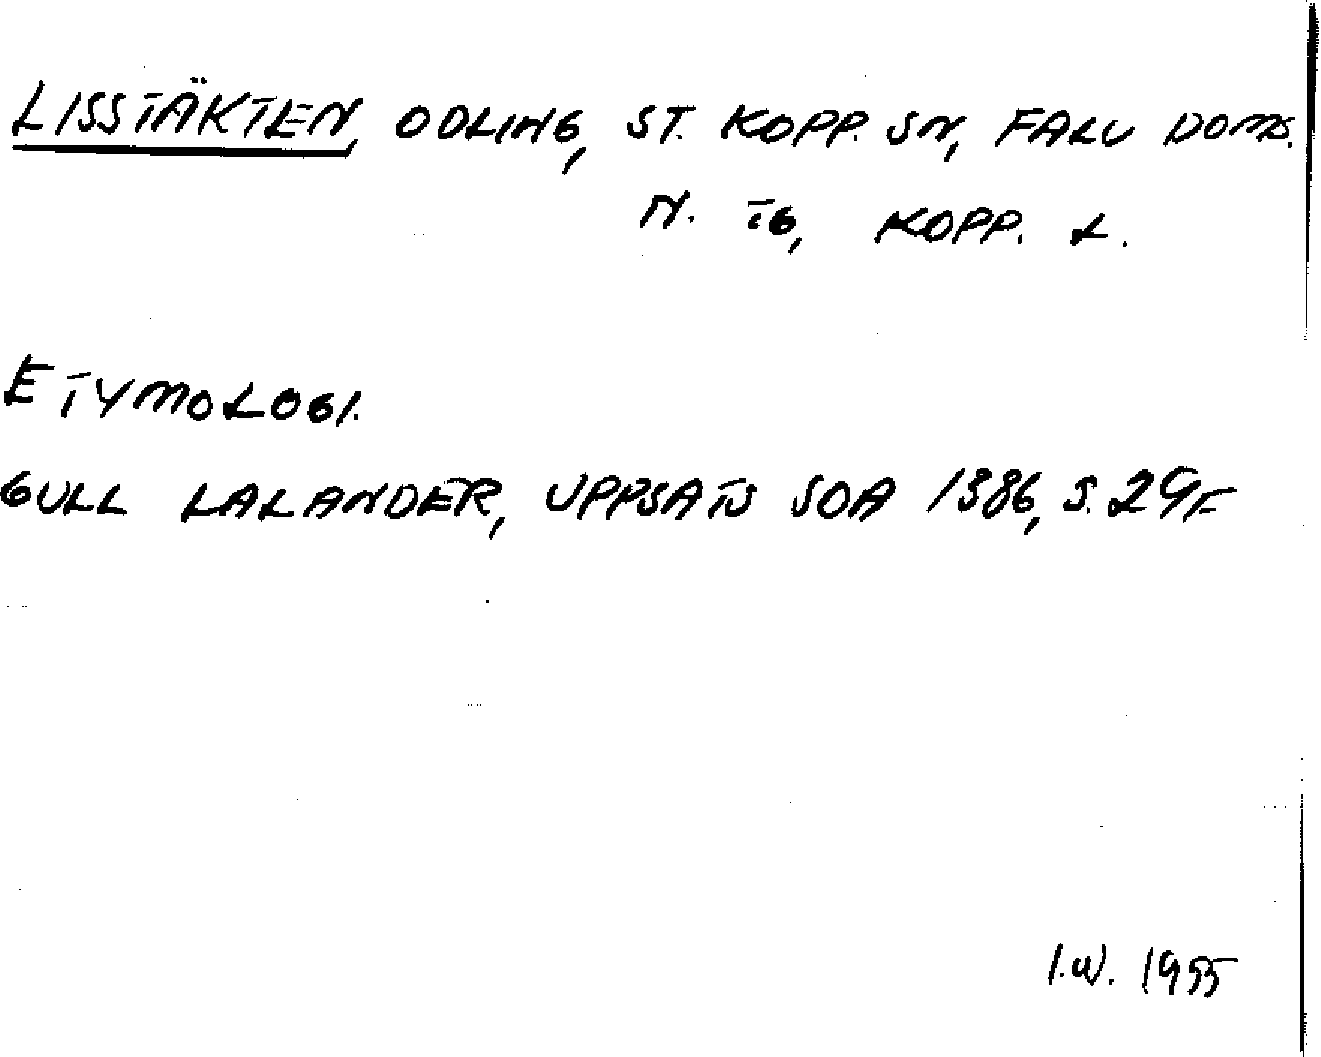 LISSTÄKTEN, ODLING, ST. KOPP. SN, FALU DOMS.
N. TG, KOPP. L.
ETYMOLOGI.
GULL LALANDER, UPPSATS SOA 1986, S. 29F
I.W. 1955